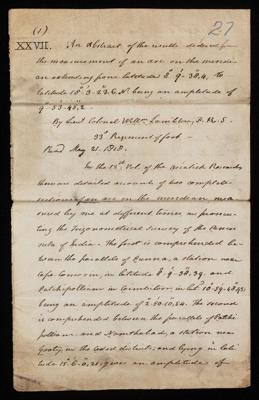 (1)
27
XXVII. An Abstract of the results deduced from
the measurement of an arc on the meridi-
an extending from latitude 8° 9′ 38,4, to
latitude 18° 3′ 23,6 N. being an amplitude of
9° 53′ 45,2
By Lieut Colonel Willm Lambton, F.R.S.
33d Regiment of foot —
Read May 21. 1818.
In the 12th Vol. of the Asiatick Researches
there are detailed accounts of two complete
sections of an arc on the meridian mea
sured by me at different times in prosecu
ting the Trigonometrical Survey of the Penin
sula of India. The first is comprehended be-
tween the parallels of Punnae, a station near
Cape Comorin, in latitude 8° 9′ 38,39, and
Patchapolliam in Coimbetoor, in lat. 10° 59′ 48,93
being an amplitude of 2° 50′ 10,54. The second
is comprehended between the parallels of Patcha
polliam and Namthabad, a station near
Gooty, in the Ceded districts, and lying in lati
tude 15° 6′ 0,21, gives an amplitude of